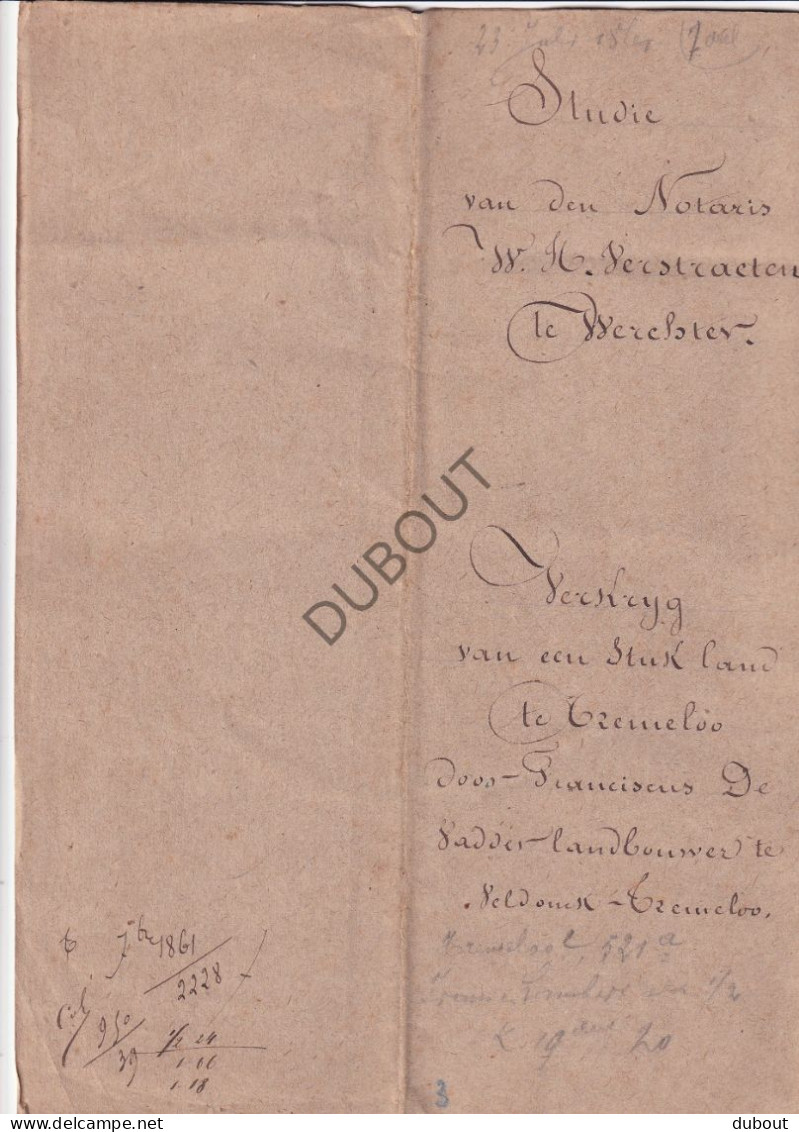 23 Juli
Studie
van den Notaris
W. H. Verstraeten
te Werchter.
DUBOUT
Verkryg
van een Stuk land
te Tremeloo
door Franciscus De
Vadder landbouwer te
Veldonck-Tremeloo.
7bre 1861
2228
950
39
1/2 24
1.16
1.18
521 a
1/2
19 20
3
dubout